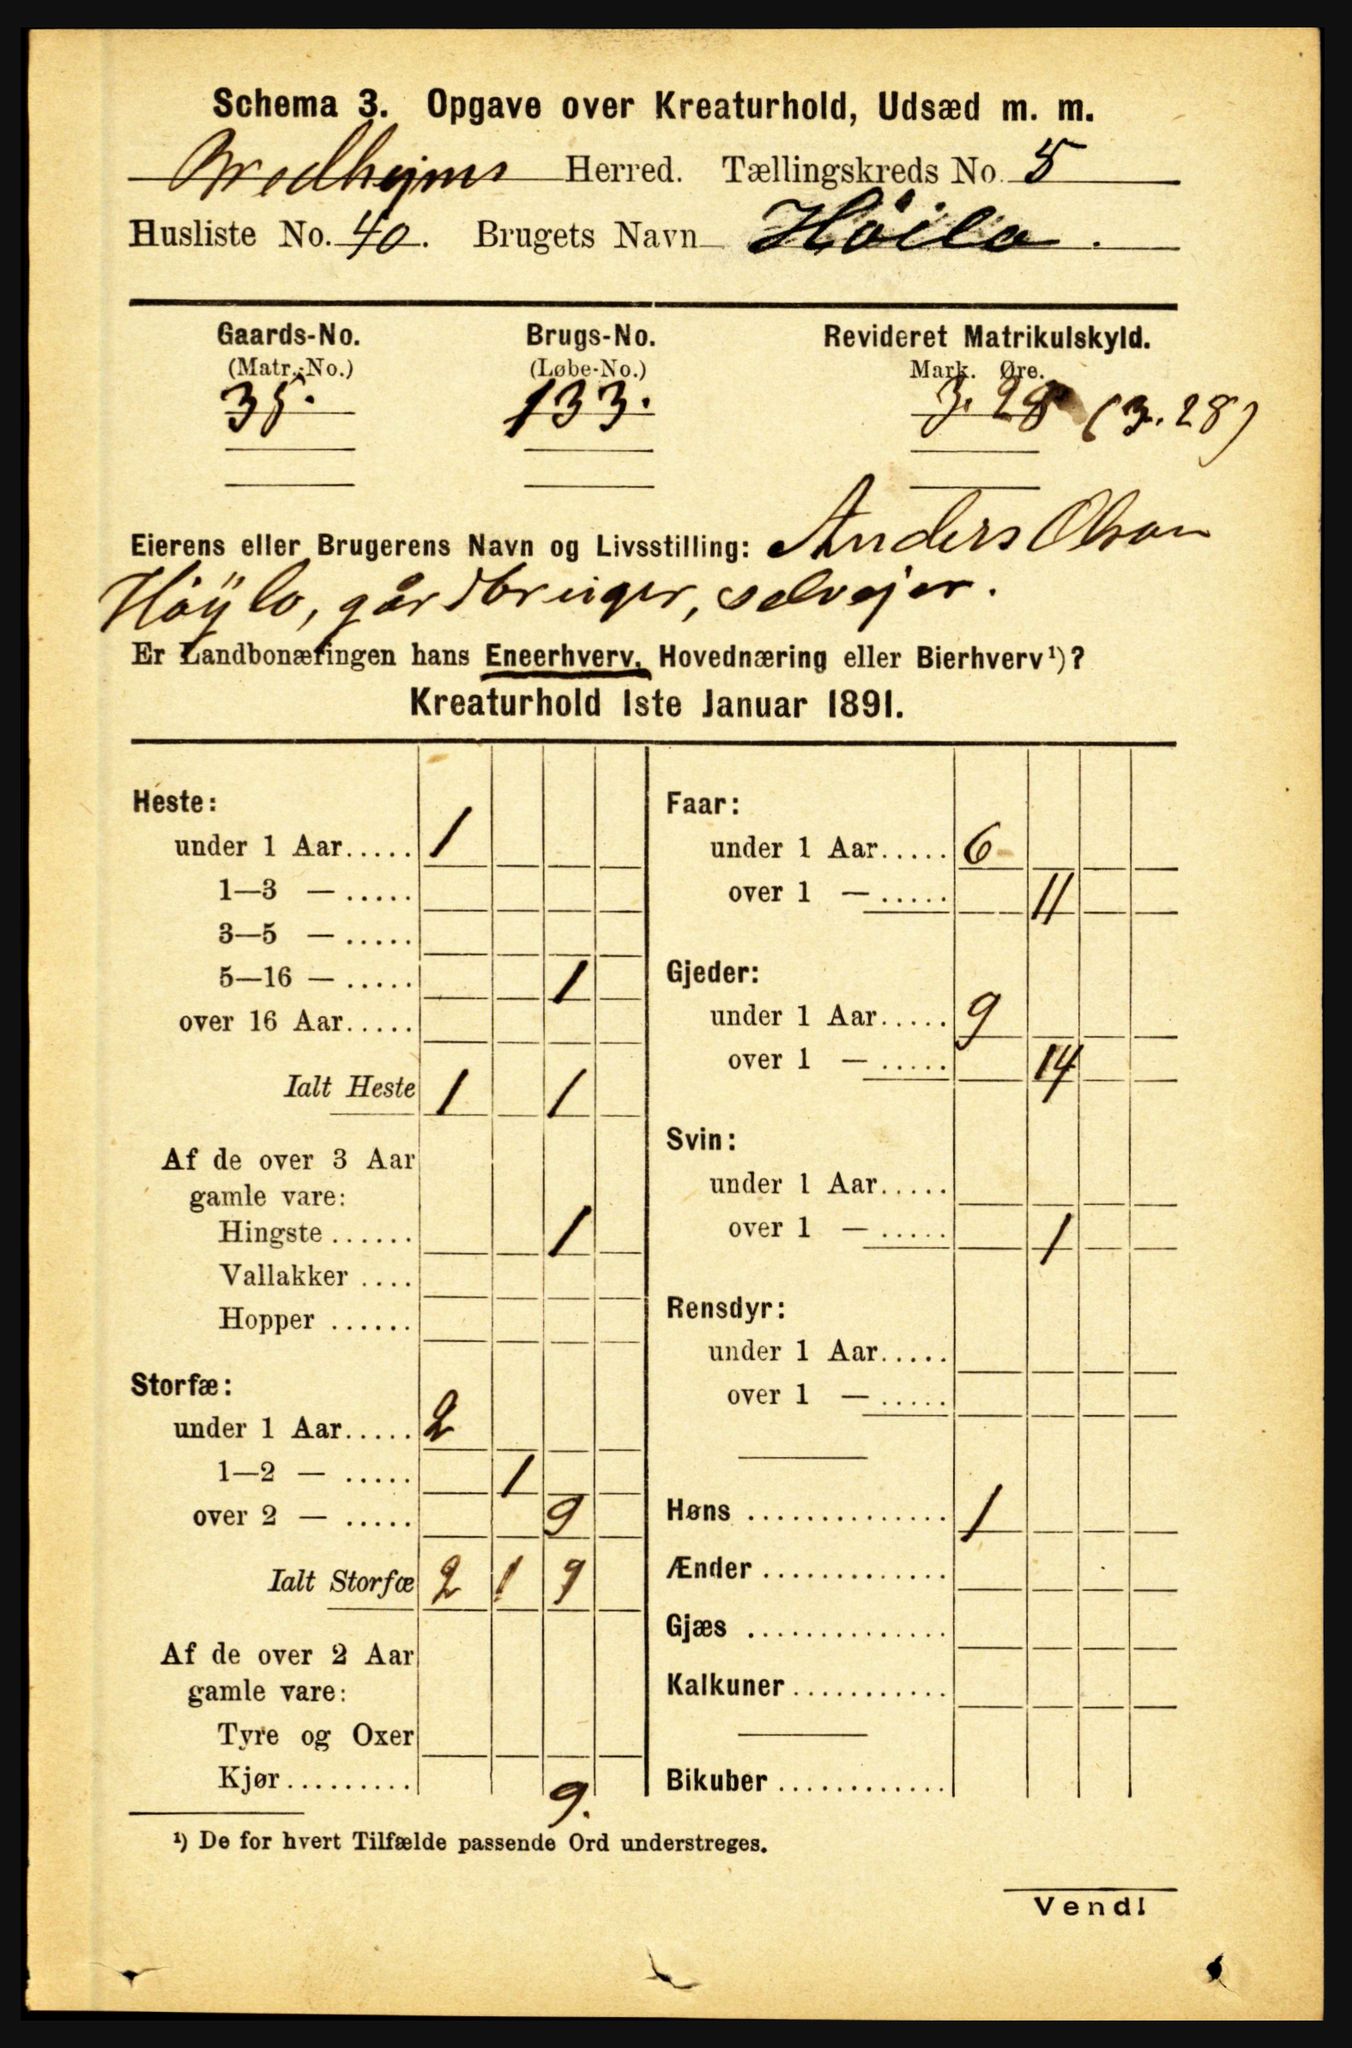 Schema 3. Opgave over Kreaturhold, Udsæd m. m.
Bredhejms Herred. Tællingskreds No. 5
Husliste No. 40. Brugets Navn Höilo.
Gaards-No. Brugs-No. Revideret Matrikulskyld.
(Matr.-No.) (Løbe-No.) Mark. Øre.
35. 133. 3. 28 (3. 28)
Eierens eller Brugerens Navn og Livsstilling: Anders Olson
Höÿlo, gårdbruger, selvejer.
Er Landbonæringen hans Eneerhverv, Hovednæring eller Bierhverv¹)?
Kreaturhold 1ste Januar 1891.
Heste:
under 1 Aar..... 1
1—3 — .....
3—5 — .....
5—16 — ..... 1
over 16 Aar.....
Ialt Heste 1 1
Af de over 3 Aar
gamle vare:
Hingste ...... 1
Vallakker ....
Hopper ......
Storfæ:
under 1 Aar..... 2
1—2 — ..... 1
over 2 — ..... 9
Ialt Storfæ 2 1 9
Af de over 2 Aar
gamle vare:
Tyre og Oxer
Kjør......... 9.
Faar:
under 1 Aar..... 6
over 1 — ..... 11
Gjeder:
under 1 Aar..... 9
over 1 — ..... 14
Svin:
under 1 Aar.....
over 1 — ..... 1
Rensdyr:
under 1 Aar.....
over 1 — .....
Høns .............. 1
Ænder .............
Gjæs ..............
Kalkuner ...........
Bikuber ............
¹) De for hvert Tilfælde passende Ord understreges.
Vend!